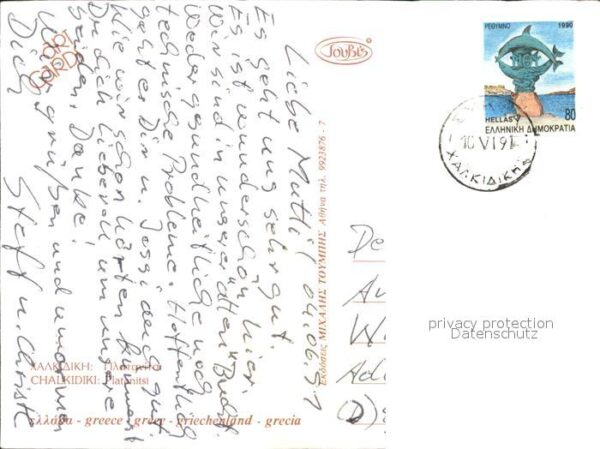 Liebe Mutti! 04.06.91
Es geht uns sehr gut.
Es ist wunderschön hier.
Wir sind in unserer alten "Bucht".
Weder gesundheitliche noch
technische Probleme. Hoffentlich
geht es Dir u. Jossi auch gut.
Wie wir schon hörten kümmerst
Du dich liebevoll um unsere
beiden. Danke!
grüßen und umarmen
Dich
Steffi u. Christ
ART
CARD
JouBis
Εκδόσεις ΜΙΧΑΛΗΣ ΤΟΥΜΠΗΣ Αθήνα τηλ. 9923876 - 7
ΧΑΛΚΙΔΙΚΗ:
CHALKIDIKI: Platanitsi
ελλάδα - greece - grèce - griechenland - grecia
ΡΕΘΥΜΝΟ 1990
HELLAS
80
ΕΛΛΗΝΙΚΗ ΔΗΜΟΚΡΑΤΙΑ
10 VI 91
ΧΑΛΚΙΔΙΚΗΣ
De
Au
W
Ada
(D)
privacy protection
Datenschutz